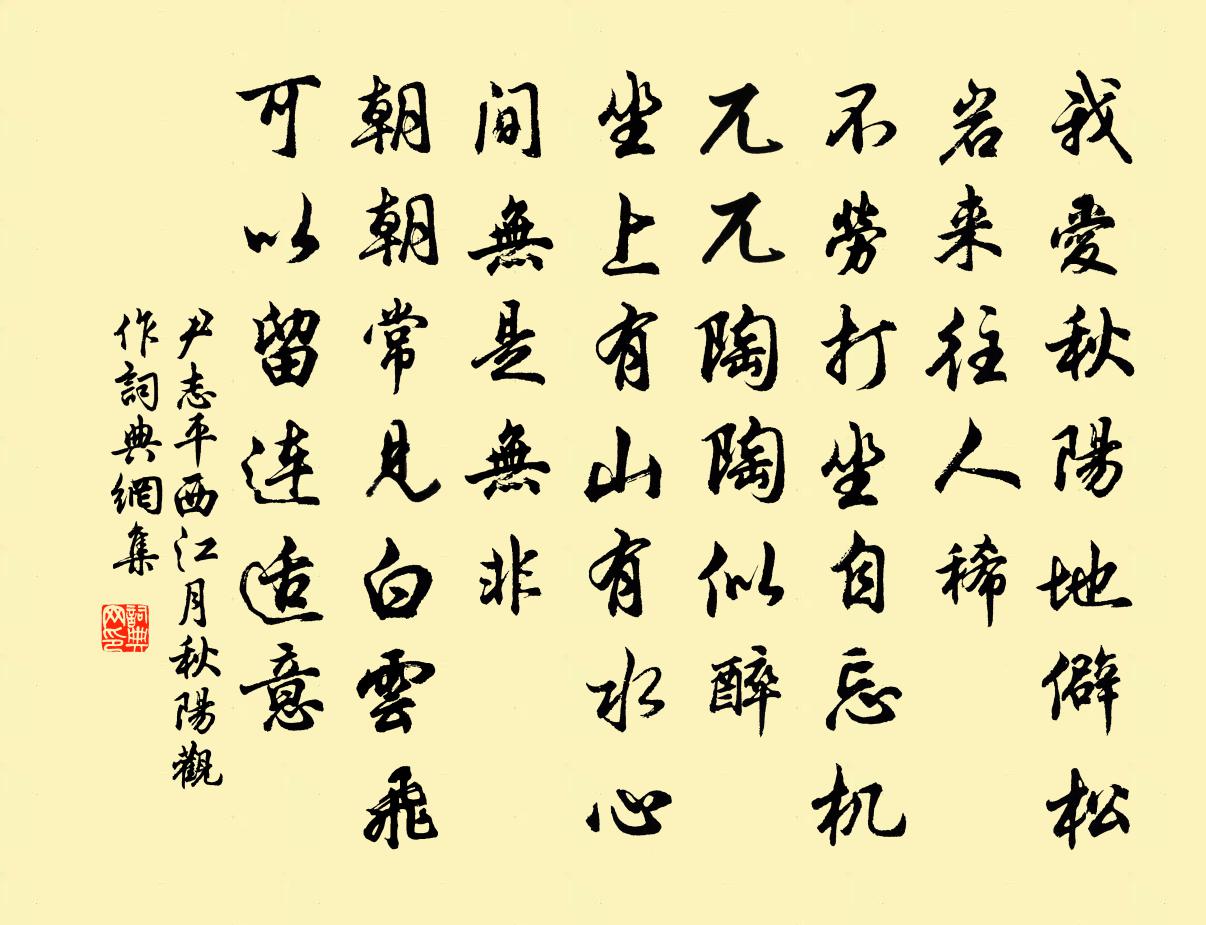 我愛秋陽地僻松
岩来往人稀
不勞打坐自忘机
兀兀陶陶似醉
坐上有山有水心
間無是無非
朝朝常見白雲飛
可以留連适意
尹志平西江月秋陽觀
作詞典網集
詞典
网印